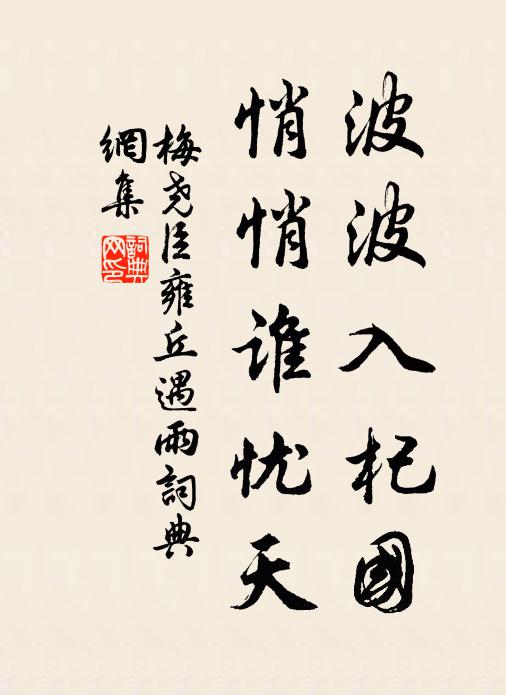 波波入杞國
悄悄谁忧天
梅尧臣雍丘遇雨詞典
網集
詞典
网印